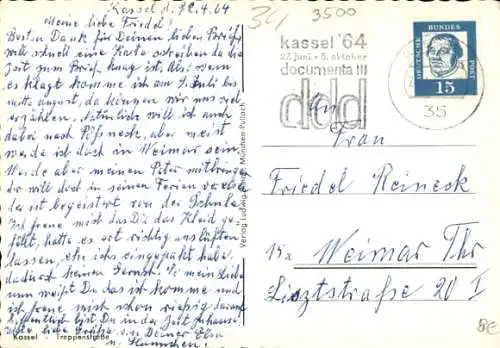 Kassel d. 12.4.64
Meine liebe Friedel!
Besten Dank für Deinen lieben Brief
will schnell eine Karte schreiben da die
Zeit zum Brief knap ist. Also wenn
es klapt komme ich am 9. Juli bis
mitte august, da können wir uns viel
erzählen. Natürlich will ich auch
dabei nach Pößneck, aber meist
werde ich doch in Weimar sein.
Werde aber meinen Peter mitbringen
der will doch in seinen Ferien
das ist begeistert von der Schule
Ich freue mich das Dir das Kleid ge-
fällt, hatte es erst richtig auslüften
lassen, ehe ich eingepakt habe,
dadurch keinen Geruch. So mein Liebe
nun weißt Du das ich komme und
ich freue mich schon riesig darauf
hoffentlich bist Du in der Zeit zuhause.
liebe Grüße von Deiner Elsa
u. Hannchen
Kassel Treppenstraße
Verlag Ludwig München-Pullach
34
3500
kassel '64
27. juni - 5. oktober
documenta III
ddd
DEUTSCHE BUNDESPOST
15
35
An
Frau
Friedel Reineck
Weimar Thr
Lisztstraße 20 I
8€